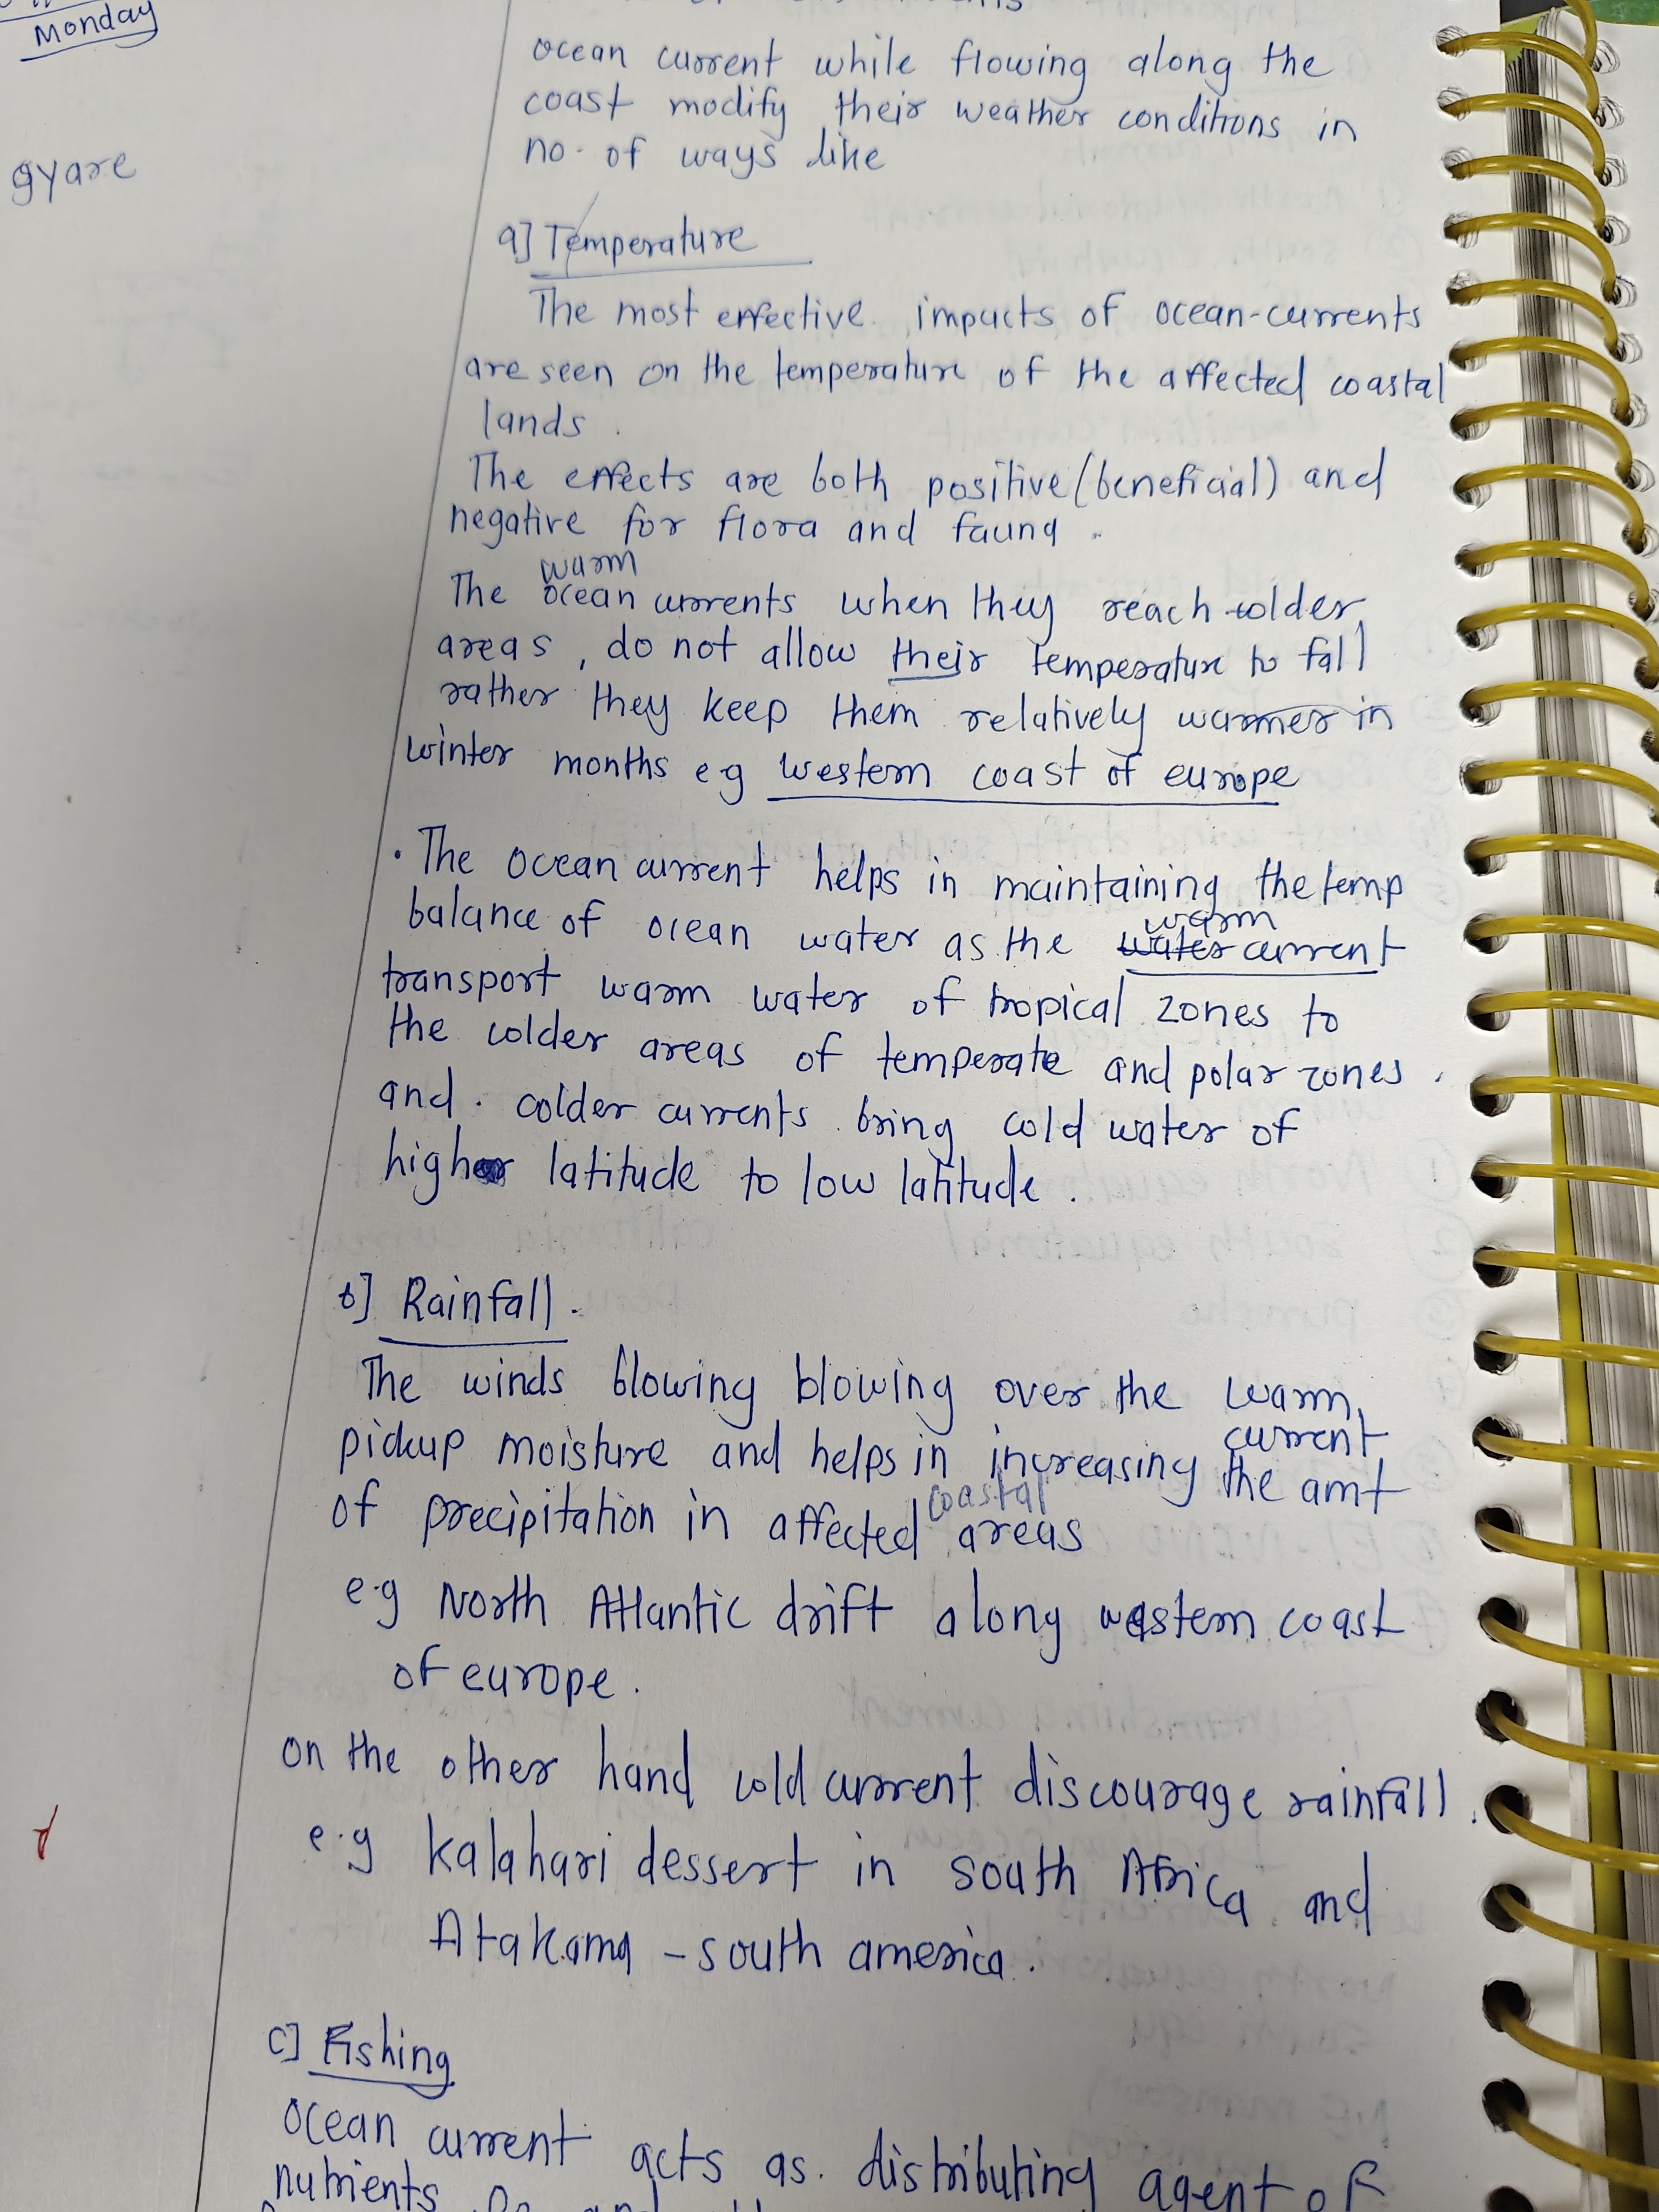 Monday
gyare
ocean current while flowing along the
coast modify their weather conditions in
no. of ways like
a] Temperature
The most effective impacts of ocean-currents
are seen on the temperature of the affected coastal
lands.
The effects are both positive (beneficial) and
negative for flora and fauna.
warm
The ocean currents when they reach colder
areas, do not allow their temperature to fall
rather they keep them relatively warmer in
winter months e.g western coast of europe
• The ocean current helps in maintaining the temp
balance of ocean water as the water warm current
transport warm water of tropical zones to
the colder areas of temperate and polar zones.
and. colder currents bring cold water of
higher latitude to low latitude.
b] Rainfall.
The winds blowing blowing over the warm
current
pickup moisture and helps in increasing the amt
coastal
of precipitation in affected areas
e.g North Atlantic drift along western coast
of europe.
on the other hand cold current discourage rainfall.
e.g kalahari dessert in south Africa and
Atakama - south america.
c] Fishing
Ocean current acts as. distributing agent of
nutrients